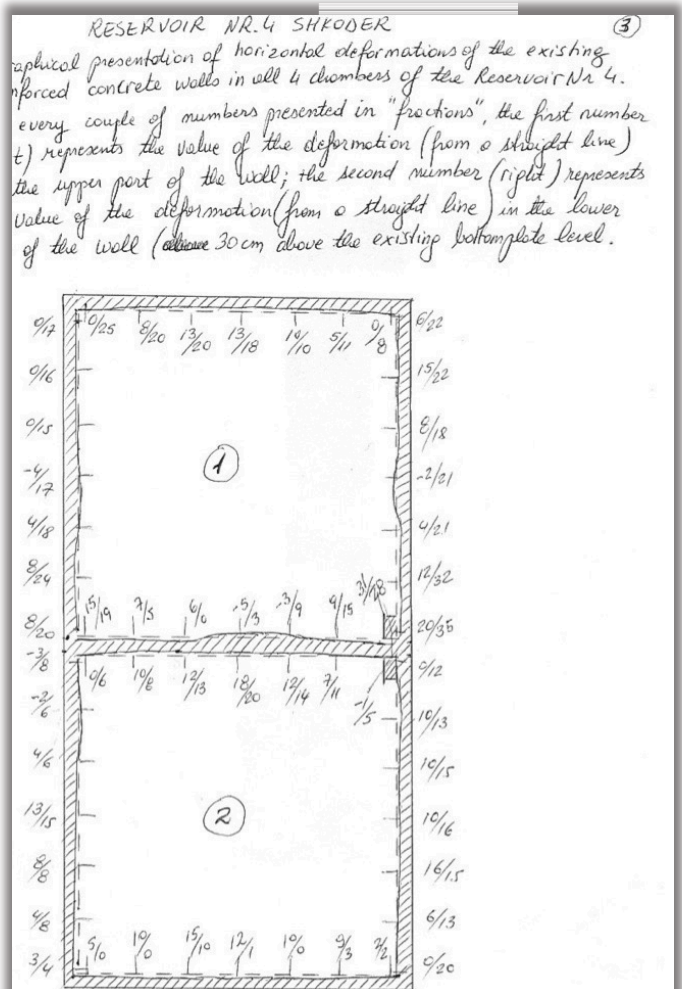 RESERVOIR NR.4 SHKODER
3
raphical presentation of horizontal deformations of the existing
nforced concrete walls in all 4 chambers of the Reservoir Nr 4.
every couple of numbers presented in "fractions", the first number
t) represents the value of the deformation (from a straight line)
the upper part of the wall; the second number (right) represents
value of the deformation (from a straight line) in the lower
of the wall ( 30 cm above the existing bottomplate level.
0/17 0/25 8/20 13/20 13/18 10/10 5/11 0/8 6/22
0/16 15/22
0/15 8/18
1
-4/17 -2/21
4/18 4/21
8/24 12/32
8/20 15/19 7/5 6/0 -5/3 -3/9 9/15 20/35
-3/8 0/6 10/8 12/13 18/20 12/14 7/11 -1/5 0/12
-2/6 10/13
4/6 10/15
13/15 2 10/16
8/8 16/15
4/8 6/13
3/4 5/0 10/0 15/10 12/1 10/0 9/3 7/2 0/20